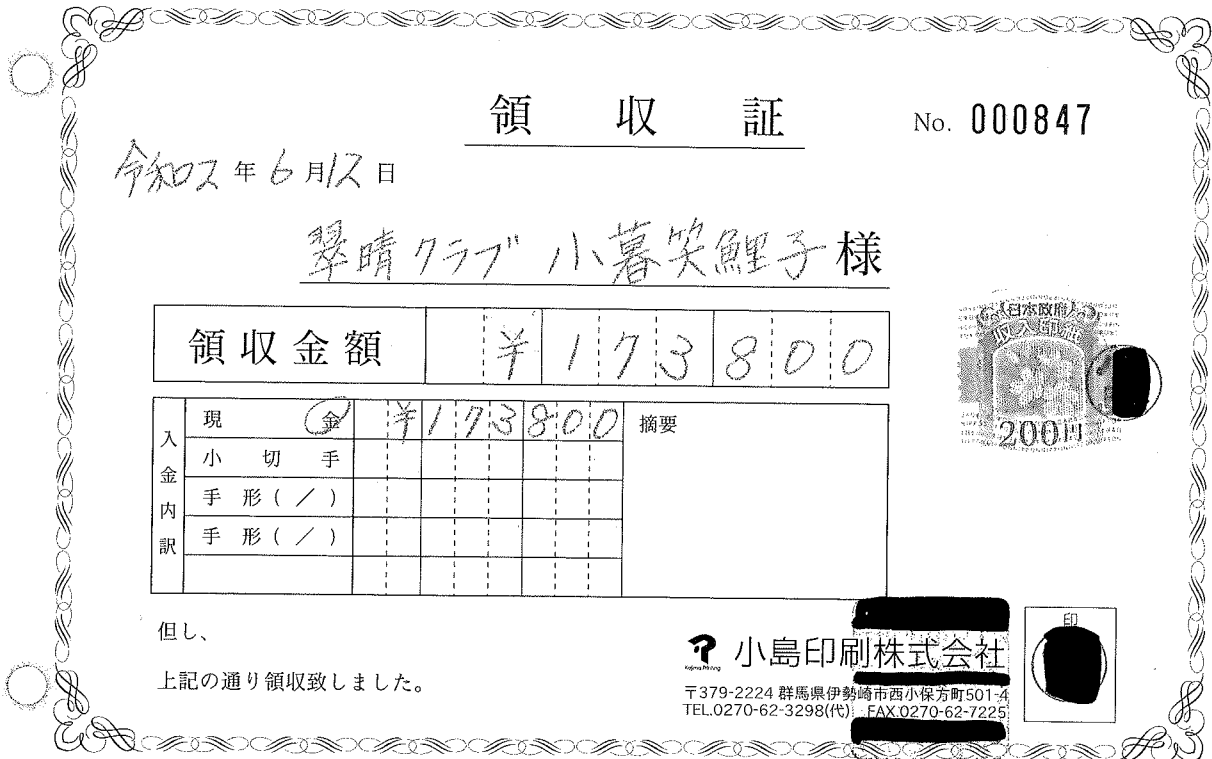 領収証
No. 000847
令和2年6月12日
翠晴クラブ 小暮笑鯉子様
領収金額 ¥173800
入金内訳
現金 ¥173800
摘要
小切手
手形(/)
手形(/)
日本政府
収入印紙
200円
但し、
上記の通り領収致しました。
Kojima Printing
小島印刷株式会社
印
〒379-2224 群馬県伊勢崎市西小保方町501-4
TEL.0270-62-3298(代) FAX.0270-62-7225